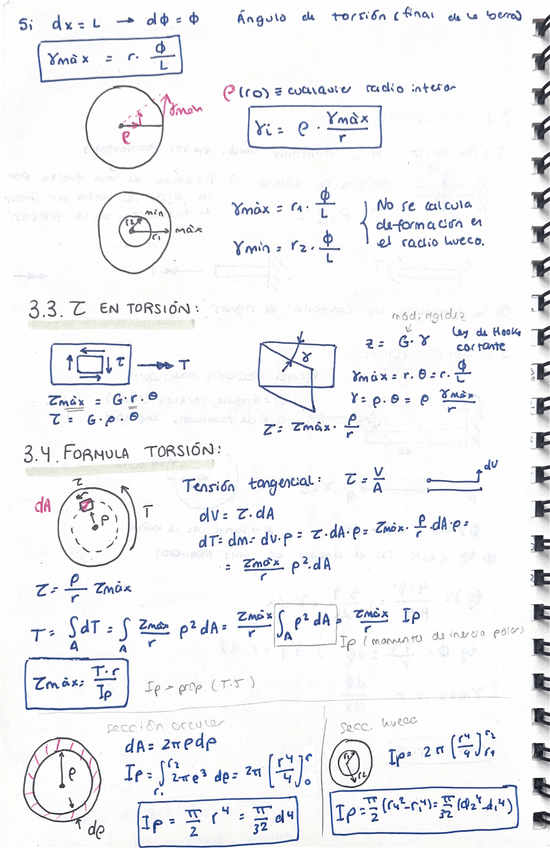 Si dx = L → dϕ = ϕ Ángulo de torsión (final de la barra)
γmàx = r · ϕ/L
γmax
ρ
ρ(r0) ≡ cualquier radio interior
γi = ρ · γmàx/r
min
r2
r1
màx
γmàx = r1 · ϕ/L
γmin = r2 · ϕ/L
No se calcula
deformación en
el radio hueco.
3.3. τ EN TORSIÓN:
τ
T
τmàx = G · r · θ
τ = G · ρ · θ
γ
τ = τmàx · ρ/r
mód. rigidez
τ = G · γ
Ley de Hooke
cortante
γmàx = r · θ = r · ϕ/L
γ = ρ · θ = ρ γmàx/r
3.4. FORMULA TORSIÓN:
dA
τ
ρ
T
Tensión tangencial: τ = V/A
dV
dV = τ · dA
dT = dm = dV · ρ = τ · dA · ρ = τmàx · ρ/r · dA · ρ =
= τmàx/r ρ² · dA
τ = ρ/r τmàx
T = ∫A dT = ∫A τmàx/r ρ² dA = τmàx/r ∫A ρ² dA = τmàx/r Iρ
Iρ (momento de inercia polar)
τmàx = T · r/Iρ
Iρ → prop (T·J)
sección circular
ρ
dρ
dA = 2πρdρ
Iρ = ∫r1 r2 2πρ³ dρ = 2π [r⁴/4] r 0
Iρ = π/2 r⁴ = π/32 d⁴
secc. hueca
r1
r2
Iρ = 2π [r⁴/4] r2 r1
Iρ = π/2 (r2⁴ - r1⁴) = π/32 (d2⁴ - d1⁴)